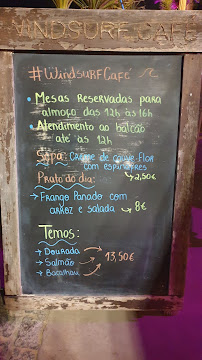 WINDSURF CAFÉ
#WindsurfCafé
• Mesas Reservadas para
almoço das 12h às 16h
• Atendimento ao balcão
até às 12h
Sopa: Creme de couve-flor
com espinafres
Prato do dia: → 2,50€
→ Frango Panado com
arroz e salada → 8€
Temos:
→ Dourada
→ Salmão → 13,50€
→ Bacalhau